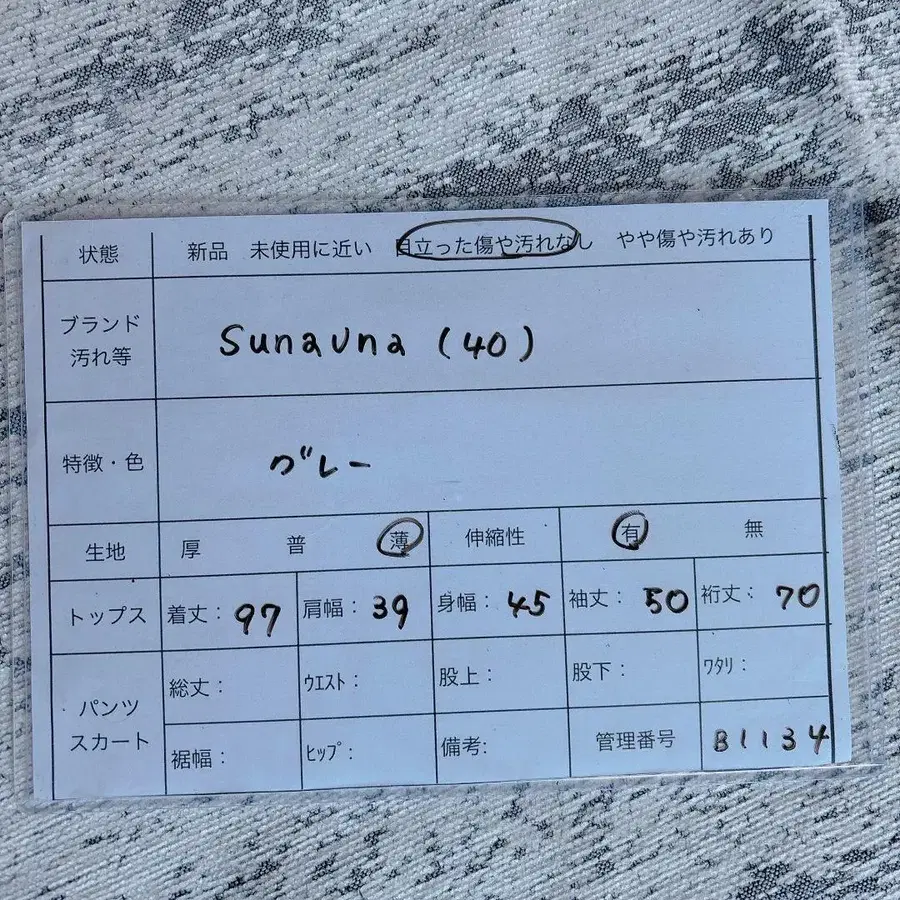 状態 新品 未使用に近い 目立った傷や汚れなし やや傷や汚れあり
ブランド
汚れ等
Sunauna (40)
特徴・色 グレー
生地 厚 普 薄 伸縮性 有 無
トップス 着丈: 97 肩幅: 39 身幅: 45 袖丈: 50 裄丈: 70
パンツ
スカート
総丈: ｳｴｽﾄ: 股上: 股下: ﾜﾀﾘ:
裾幅: ﾋｯﾌﾟ: 備考: 管理番号 B1134